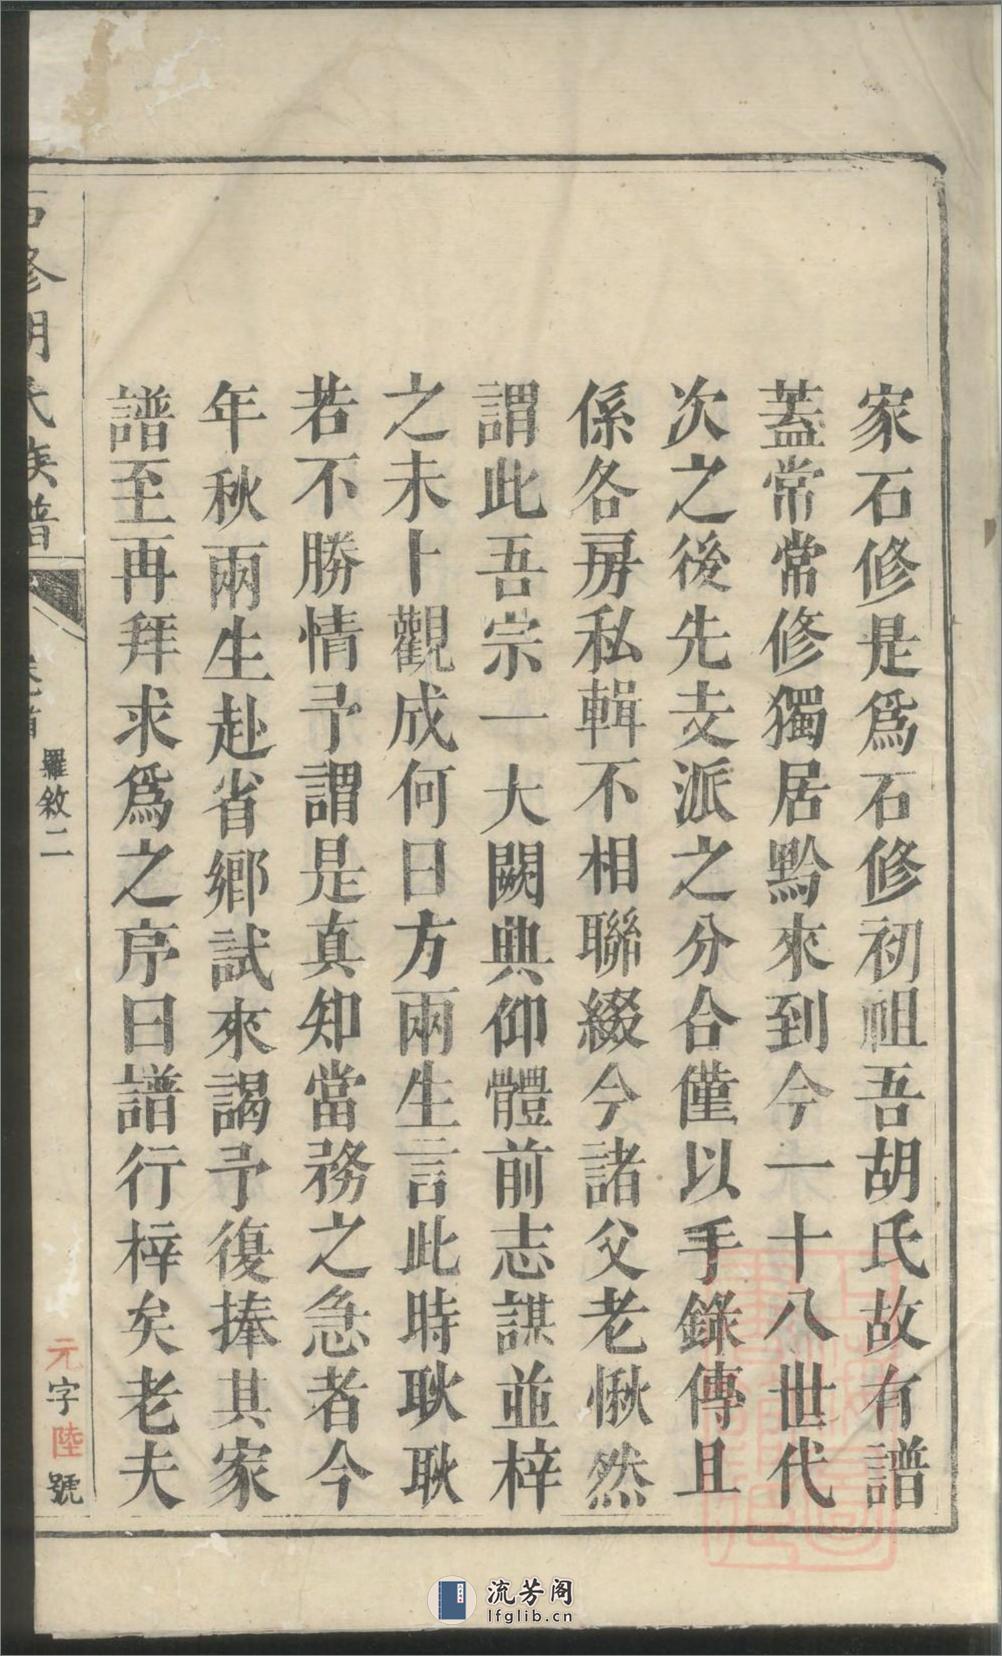 家石修是爲石修初祖吾胡氏故有譜
蓋常常修獨居黔來到今一十八世代
次之後先支派之分合僅以手錄傳且
係各房私輯不相聯綴今諸父老愀然
謂此吾宗一大闕典仰體前志謀並梓
之未卜觀成何日方兩生言此時耿耿
若不勝情予謂是真知當務之急者今
年秋兩生赴省鄉試來謁予復捧其家
譜至再拜求爲之序曰譜行梓矣老夫
石修胡氏族譜
卷首
羅敘二
元字陸號
流芳阁
lfglib.cn